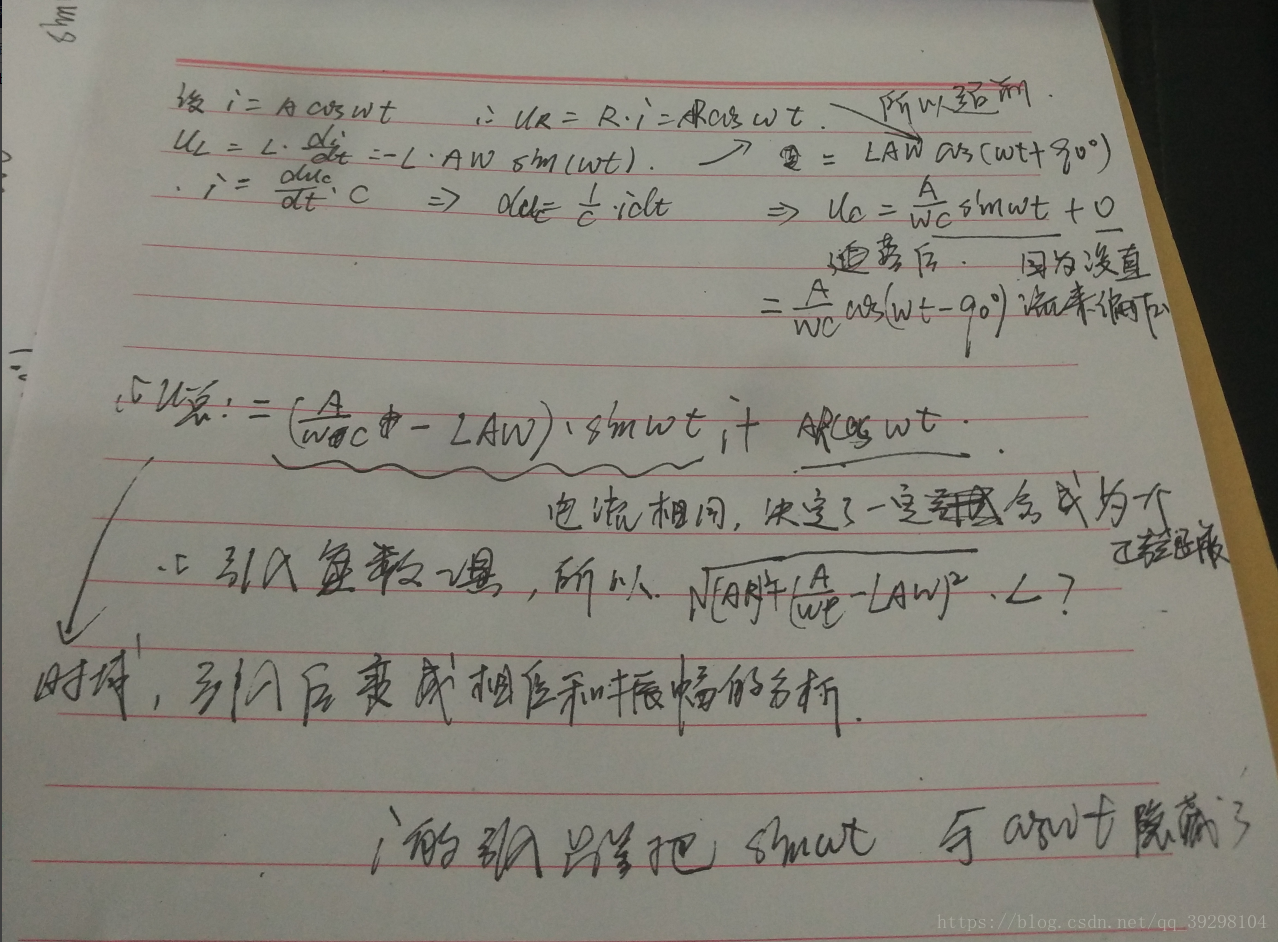 设 i = A cos wt ∴ UR = R·i = ARcos wt. 所以超前.
UL = L·di/dt = -L·AW sin(wt). = LAW cos(wt+90°)
i = duc/dt·C ⇒ duc = 1/C·idt ⇒ Uc = A/WC sinwt + 0
落后. 因为没直
= A/WC cos(wt-90°) 流来偏
∴ U总: = (A/WC - LAW)·sin wt + ARcos wt.
电流相同,决定了一定会成为一个
∴ 引入复数以, 所以 √((AR)²+(A/WC-LAW)²) .∠?
时域, 引入后变成相位和振幅的分析.
i的引入只是把 sinwt 与 coswt 隐藏了
https://blog.csdn.net/qq_39298104